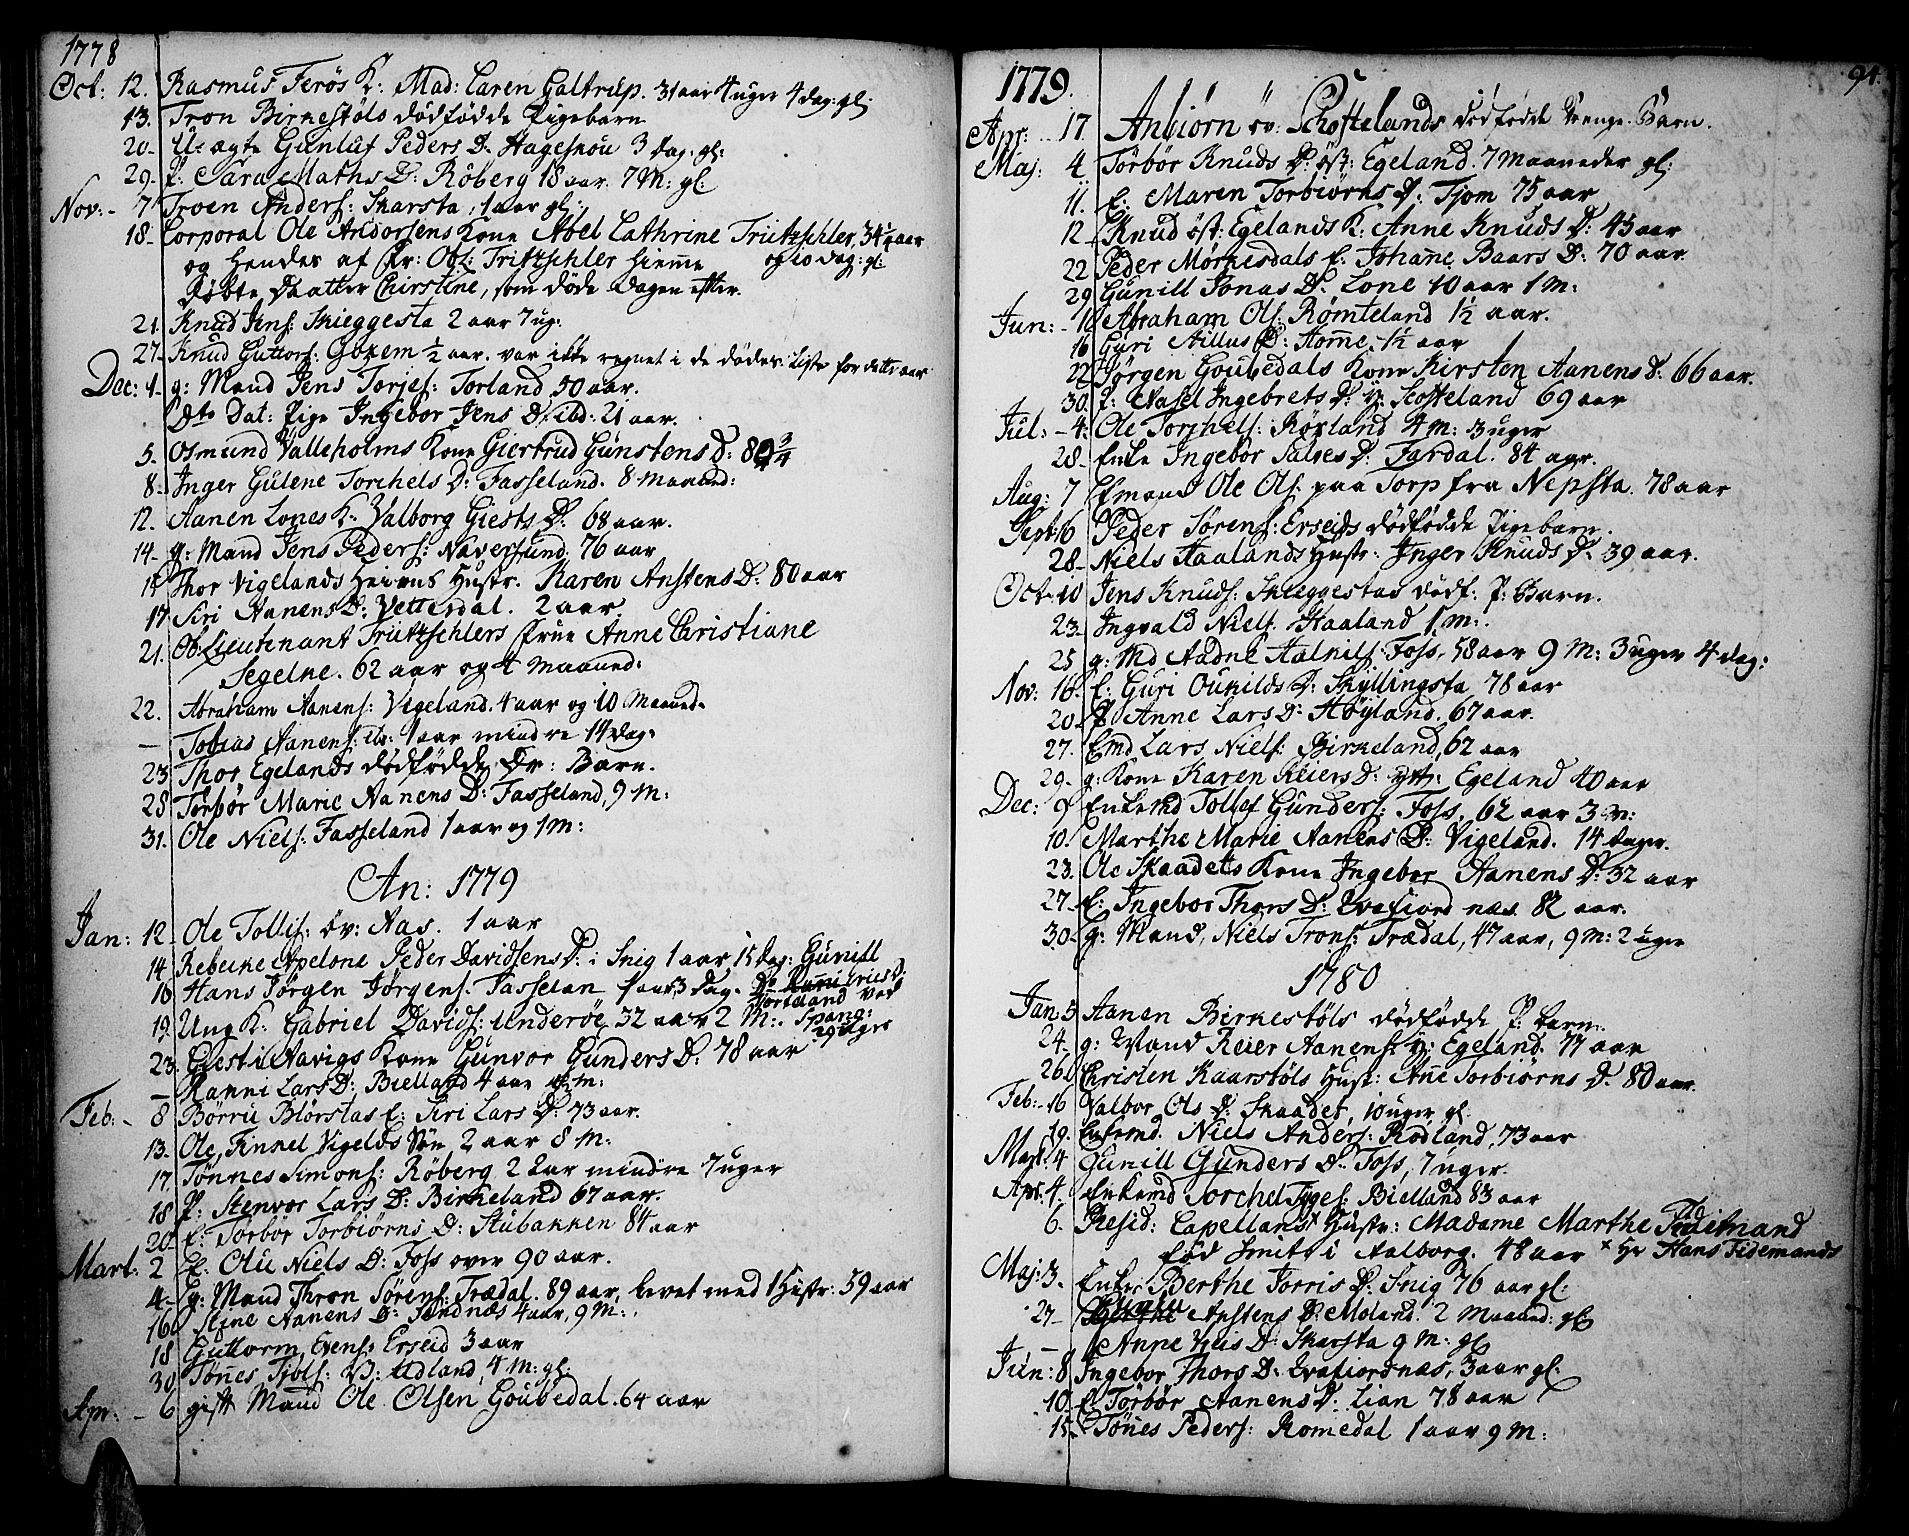 1778
Oct: 12. Rasmus Ferøs K: Mad: Caren Galtrup. 31 aar 4 uger 4 dag: gl:
13. Tron Birkestøls dødfødde Pigebarn
20. Uægte Gunluf Peders D. Hageskou 3 dag. gl:
29. P: Sara Maths D: Røberg 18 aar. 7 M: gl:
Nov: - 7 Troen Anders: Skarsta, 1 aar gl:
18. Corporal Ole Andorsens Kone Abel Cathrine Trützschler. 34 1/4 aar
og hendes af Hr: Ob: Tritzschler hieme og 10 dag: gl:
døbte daatter Chirstine, som døde dagen efter.
21. Knud Jens: Skieggesta 2 aar 7 ug:
27. Knud Guttorf: Goxem 1/2 aar. var ikke regnet i de dødes Liste for dette aar
Dec: 4. g: Mand Jens Torjes: Torland 50 aar.
Dto Dat: Pige Ingebor Jens D. ibd: 21 aar.
5. Osmund Valleholms Kone Giertrud Gunstens D: 80 3/4
8. Inger Gulene Torchels D: Fasseland. 8 Maaned:
12. Aanen Lones K: Valborg Giests D: 68 aar.
14. g: Mand Jens Peders: Naversund. 76 aar
Thor Vigelands Heiens Hustr. Karen Anstens D: 80 aar
17 Siri Aanens D: Vetterdal. 2 aar
21. Ob: Lieutenant Trützschlers frue Anne Christiane
Segelne. 62 aar og 4 Maaned:
22. Abraham Aanens: Vigeland. 4 aar og 10 Maaned.
— Tobias Aanens: ib: 1 aar mindre 14 dag:
23 Thor Egelands dødfødde Dr: Barn.
28 Torbør Marie Aanens D: Fasseland, 9 M:
31. Ole Niels: Fasseland 1 aar og 1 M:
An: 1779
Jan: 12. Ole Tollifs: öv: Aas. 1 aar
14. Rebecke Apelone Peder Davidsens D: i Snig 1 aar 15 dag: Gunill
16 Hans Jørgen Jørgens. Fasselan 1 aar 3 dag.
19. Ung K. Gabriel Davids: Underøe 32 aar 2 M:.
23. Giesti Aavigs Kone Gunvor Gunders D. 78 aar
— Ranni Lars D: Bielland 4 aar M:
Feb: - 8 Børru Blørstas E: Siri Lars D: 73 aar.
13. Ole, Finnel Vigelds Søn 2 aar 8 M:
17. Tønnes Simons: Røberg 2 aar mindre 7 uger
18 P: Stenvor Lars D: Birkeland 67 aar.
20 E: Torbor Torbiørns D: Stubakken 84 aar
Mart: 2 E: Olu Niels D: Foss over 90 aar.
4. g: Mand Thron Sørens: Trædal. 89 aar, levet med 1 Hustr: 59 aar
16 Stine Aanens D: Tendnæs 4 aar, 9 M:.
18 Guttorm Evens: Erseid 3 aar
30 Tønnes Tjøls: Udland, 4 M: gl:
Apr: - 6 gift Mand Ole Olsen Goubedal. 64 aar
94.
1779.
Apr: .. 17 Anbiørn öv: Schoffelands dødfødde Drenge-Barn.
Maj: 4 Torbør Knuds D. öst: Egeland. 7 Maaneder gl:
11. E: Maren Torbiørns D: Tjom 75 aar
12. Knud öst: Egelands K: Anne Knuds D: 45 aar
22 Peder Mørkesdals E: Johanne Baars D: 70 aar
29 Gunill Jonas D: Lone 10 aar 1 M:
Jun: - 10 Abraham Ols. Rømteland 1 1/2 aar.
16 Guri Aillus D: Homme. 1 1/2 aar
22 Jørgen Goubedals Kone Kirsten Aanens D: 66 aar.
30. P: Aasel Ingebrets D: y: Scoffeland 69 aar
Jul: - 4. Ole Torchels: Røxland 4 M: 3 uger
28. Enke Ingebor Salves D: Fardal. 84 aar.
Aug: 7 Efmand Ole Ols. paa Torp fra Nepsta. 78 aar
Sept: 6 Peder Sørens: Erseids dødfødde Pigebarn.
28. Niels Haalands Hustr: Inger Knuds D: 39 aar.
Oct - 10 Jens Knuds: Skieggestas dødf: P: Barn.
23. Ingvald Niels. Haaland 1 M:.
25 g: Md Aadne Aalnils: Foss, 58 aar 9 M: 3 uger 4 dag:
Nov: 16. E: Guri Oukilds D: Skyllingsta 78 aar
20. P Anne Lars D: Høyland. 67 aar.
27. Emd Lars Niels: Birkeland, 62 aar
29. g: Kone Karen Reiers D: ytt: Egeland 40 aar
Dec: 9 Enkemd Tollef Gunders: Foss, 62 aar 3 M:
10. Marthe Marie Aanens D: Vigeland. 14 dager.
23. Ole Skaadets Kone Ingebor Aanens D: 32 aar
27. E: Ingebor Thors D: Qvafiord næs. 82 aar.
30. g: Mand, Niels Trons: Trædal, 47 aar, 9 M: 2 uger
1780
Jan 5 Aanen Birkestøls dødfødde P: barn.
24. g: Mand Reier Aanens: y: Egeland. 77 aar
26. Christen Kaarstøls Hust: Anne Torbiørns D. 80 aar.
Feb: - 16 Valbor Ols D: Skaadet, 10 uger gl.
19. Enkemd. Niels Anders: Rødland, 73 aar
Mart: 4 Gunill Gunders D: Foss, 7 uger.
Apr. 4. Enkemd Torchel Tyges: Bielland 83 aar
6. Resid: Capellans x Hustr: Madame Marthe Tidemand
fød Smit i Aalborg. 48 aar x Hr Hans Tidemands
Maj: 3. Enke: Berthe Torris D: Snig 76 aar gl:
27- Anstens D: Moland. 2 Maaned: gl
Anne D: Skarsta 9 M: gl
Jun: 8 Ingebor Thors D: Qvafiordnæs, 3 aar gl:
10. E Torbør Aanens D: Lian 78 aar
15. Tønnes Peders: Romedal 1 aar 9 M: